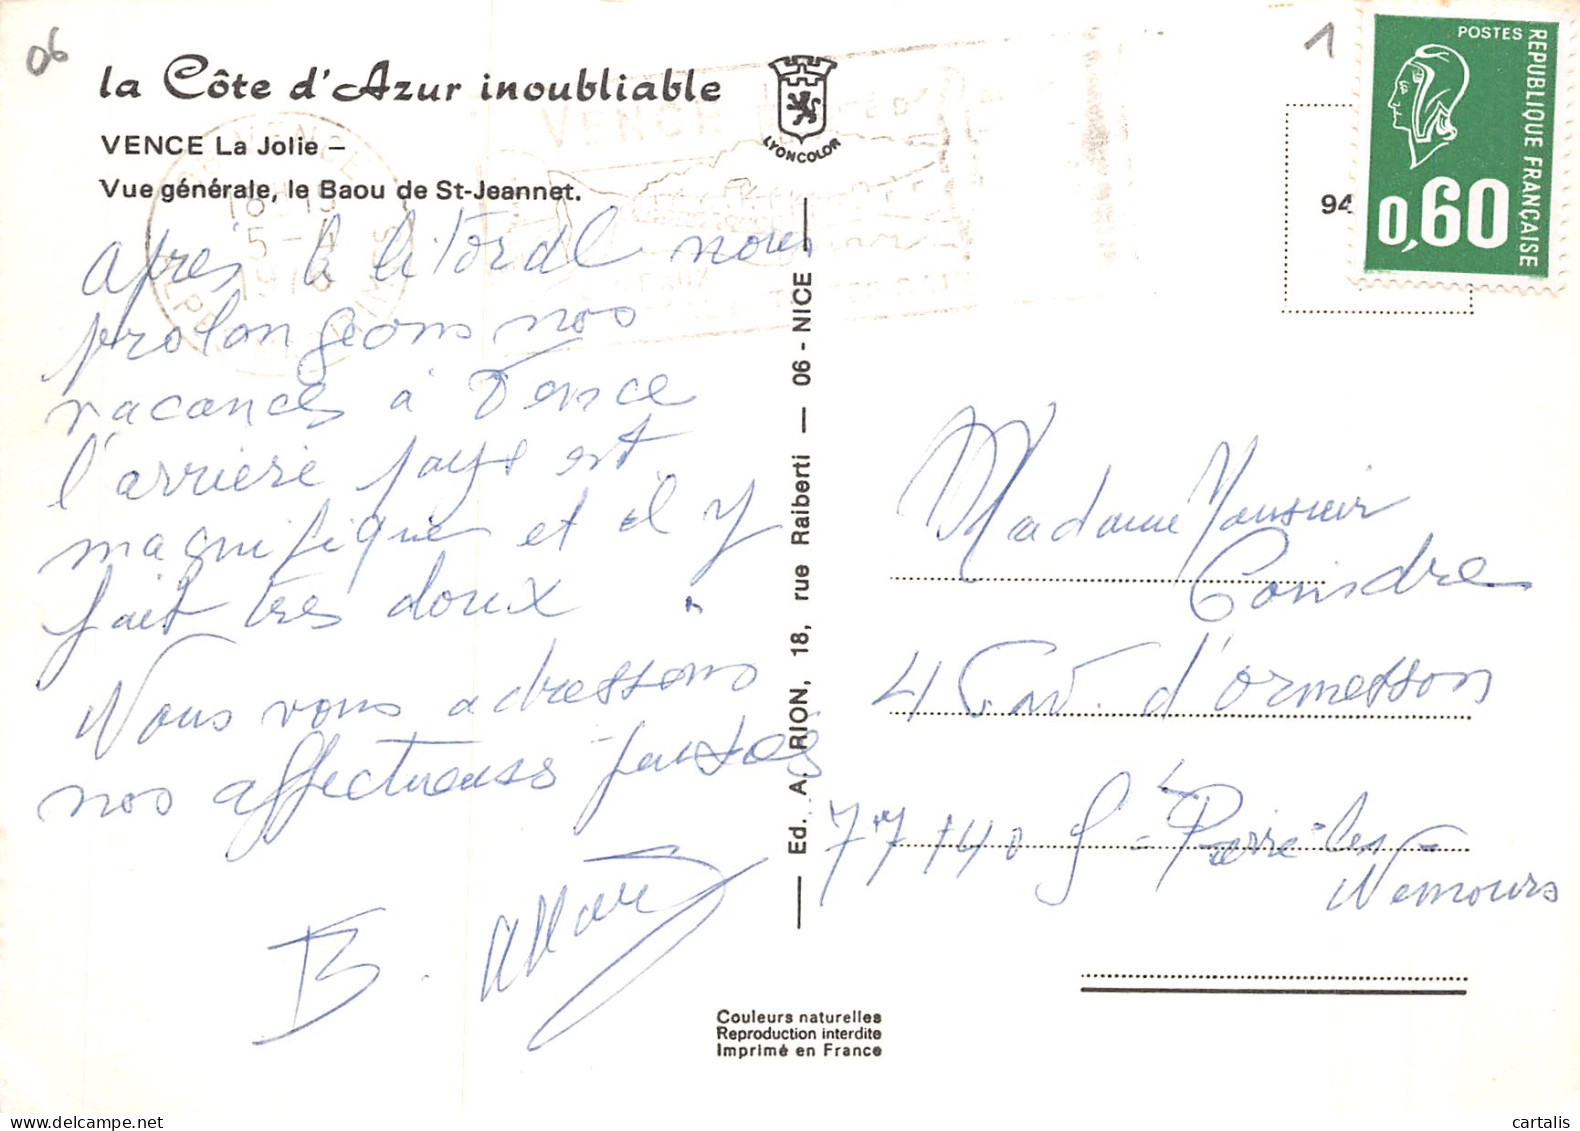 06
la Côte d'Azur inoubliable
VENCE La Jolie –
Vue générale, le Baou de St-Jeannet.
après le litoral nous
prolongeons nos
vacances à Vence
l'arrière pays est
magnifique et il y
fait très doux.
Nous vous adressons
nos affectueuses pensées
B. Allar
LYONCOLOR
Ed. A. RION, 18, rue Raiberti — 06 - NICE
Couleurs naturelles
Reproduction interdite
Imprimé en France
1
POSTES
REPUBLIQUE FRANÇAISE
0,60
94
VENCE
Madame Monsieur
Coindre
4 av. d'ormesson
77140 St-Pierre-les-
Nemours
cartalis